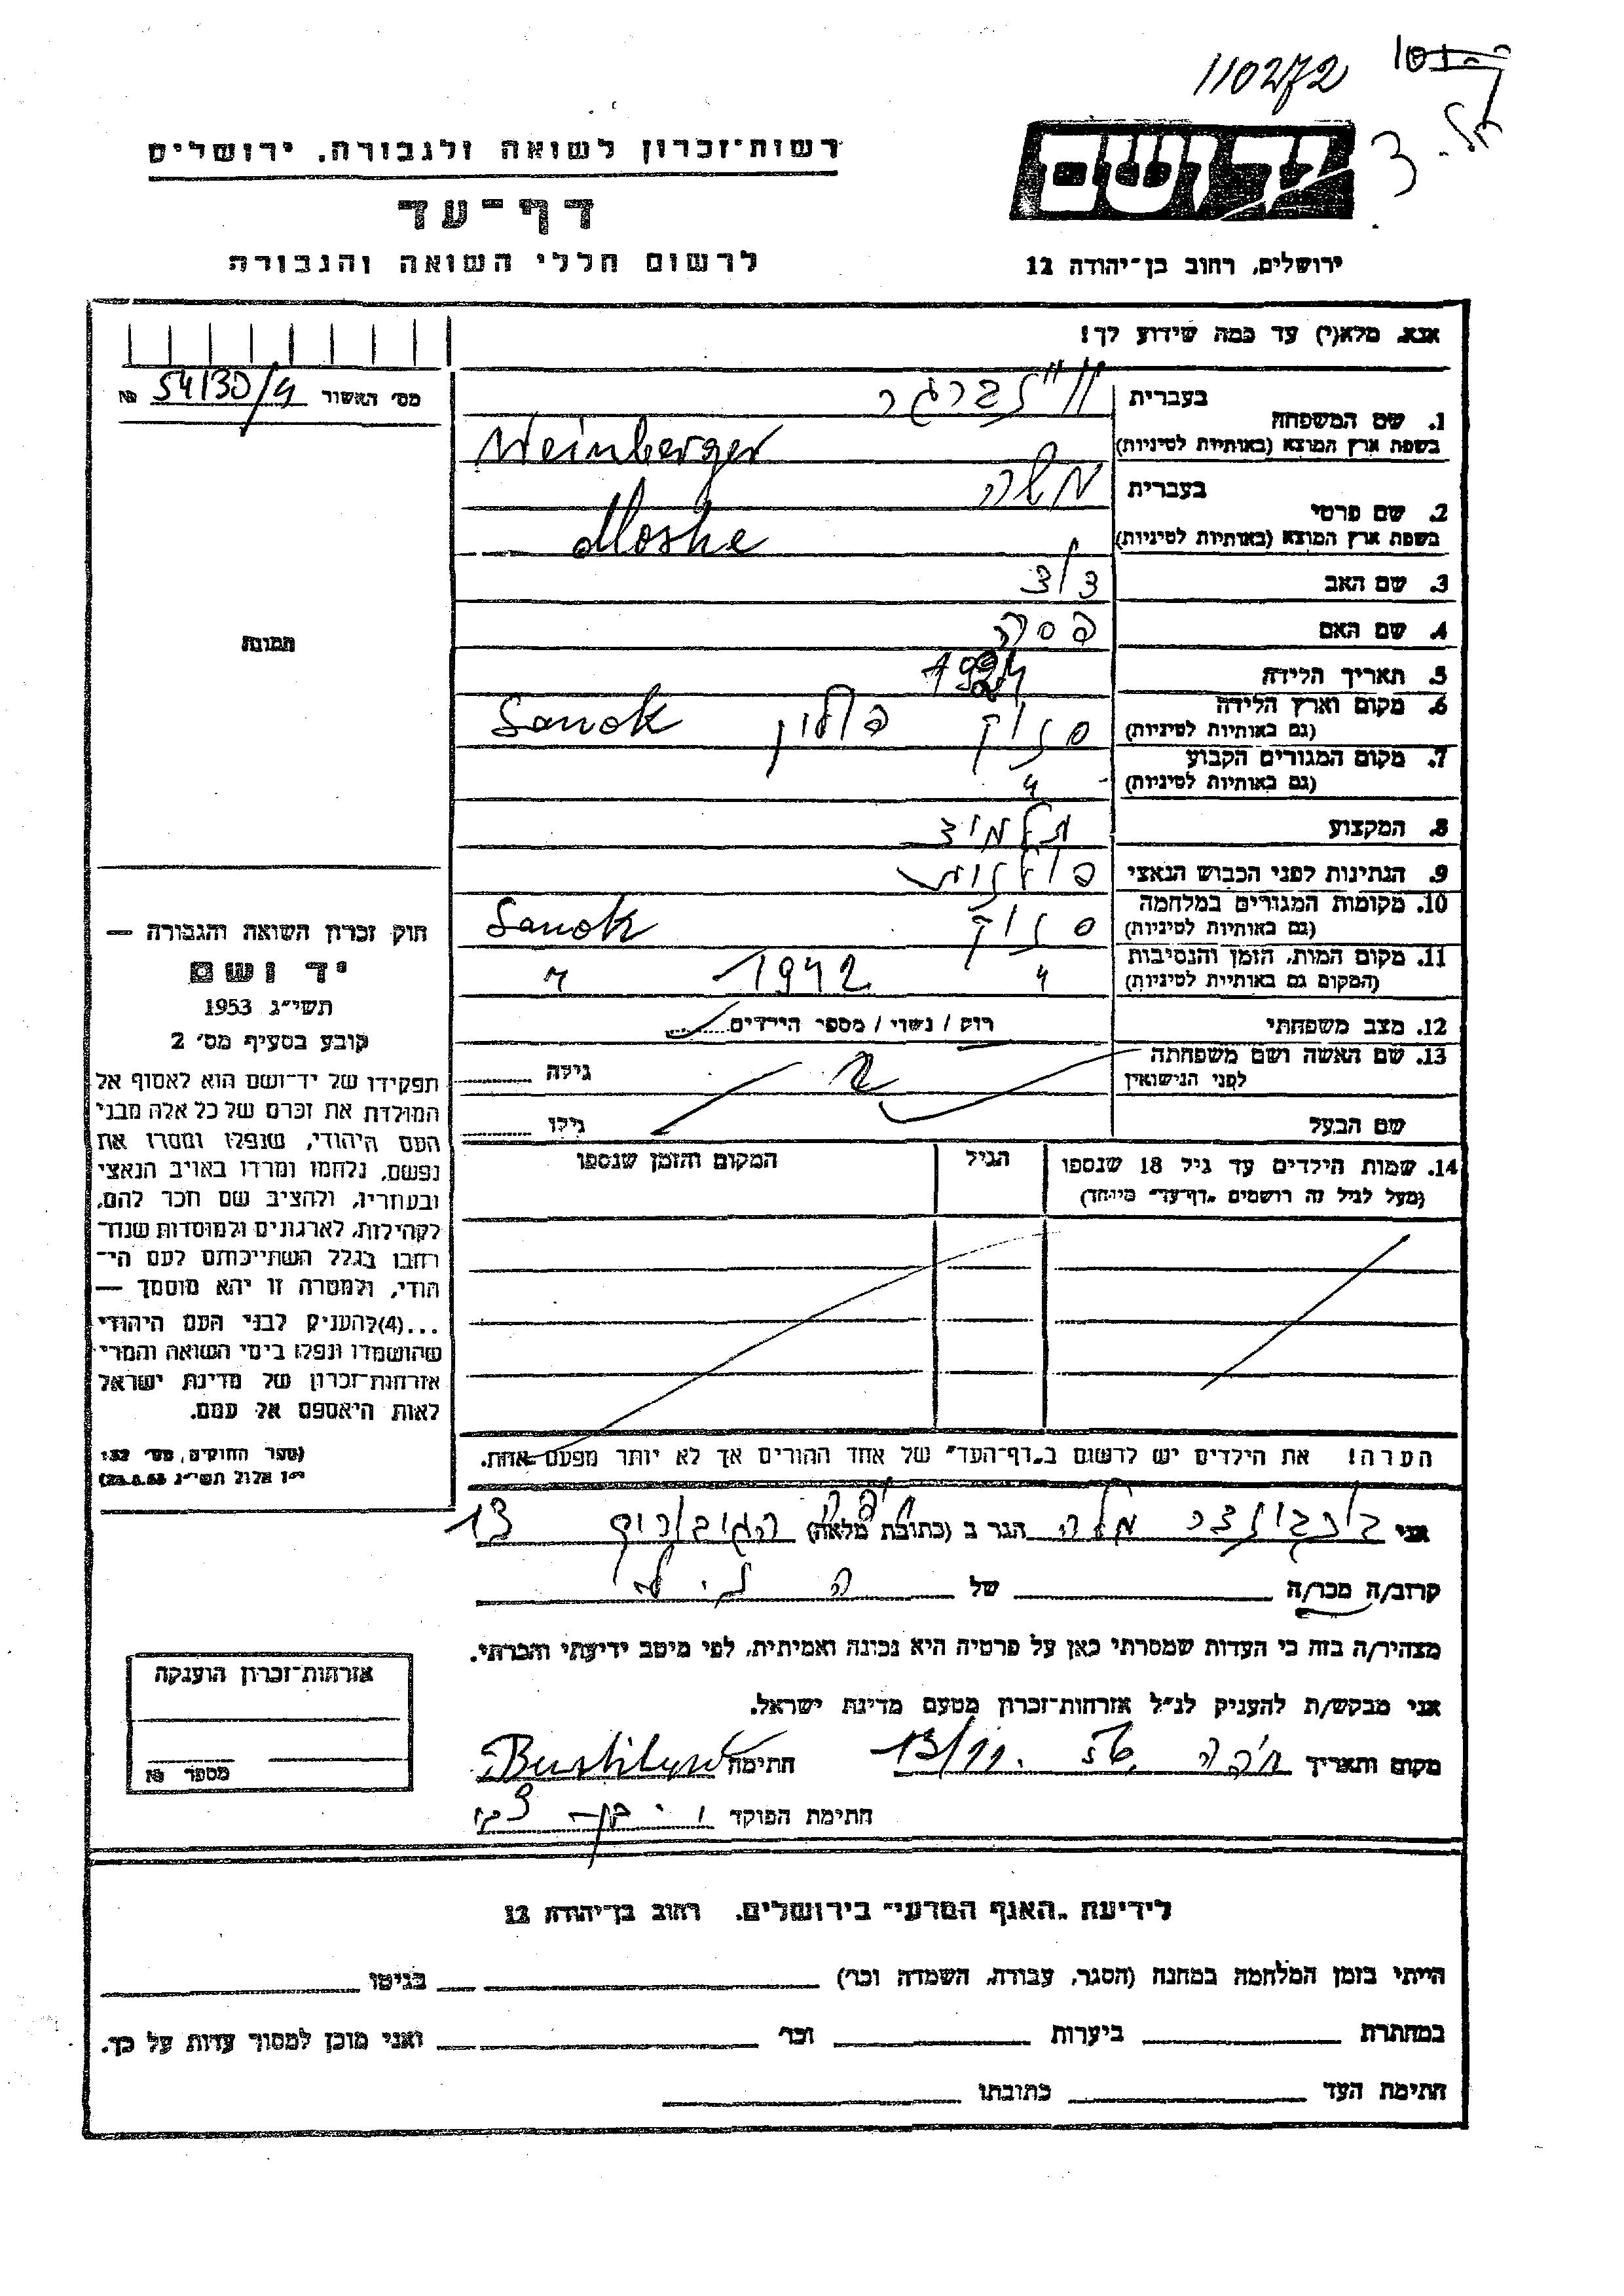 110272
רשות־זכרון לשואה ולגבורה, ירושלים
דף־עד
לרשום חללי השואה והגבורה
ידושם
ירושלים, רחוב בן־יהודה 12
אנא, מלא(י) עד כמה שידוע לך!
מס׳ האשור 54130/4 №
1. שם המשפחה
בעברית ויינברגר
בשפת ארץ המוצא (באותיות לטיניות) Weinberger
2. שם פרטי
בעברית משה
בשפת ארץ המוצא (באותיות לטיניות) Moshe
3. שם האב
4. שם האם פסיה
5. תאריך הלידה 1924
6. מקום וארץ הלידה
(גם באותיות לטיניות) סנוק פולין Sanok
7. מקום המגורים הקבוע
(גם באותיות לטיניות) "
8. המקצוע תלמיד
9. הנתינות לפני הכבוש הנאצי פולנית
10. מקומות המגורים במלחמה
(גם באותיות לטיניות) סנוק Sanok
11. מקום המות, הזמן והנסיבות
(המקום גם באותיות לטיניות) " 1942 "
12. מצב משפחתי רווק / נשוי / מספר הילדים
13. שם האשה ושם משפחתה
לפני הנישואין גילה
שם הבעל גילו
14. שמות הילדים עד גיל 18 שנספו
(מעל לגיל זה רושמים „דף־עד" מיוחד)
הגיל
המקום והזמן שנספו
הערה! את הילדים יש לרשום ב„דף־העד" של אחד ההורים אך לא יותר מפעם אחת.
תמונה
חוק זכרון השואה והגבורה —
יד ושם
תשי״ג 1953
קובע בסעיף מס׳ 2
תפקידו של יד־ושם הוא לאסוף אל
המולדת את זכרם של כל אלה מבני
העם היהודי, שנפלו ומסרו את
נפשם, נלחמו ומרדו באויב הנאצי
ובעוזריו, ולהציב שם וזכר להם,
לקהילות, לארגונים ולמוסדות שנח־
רבו בגלל השתייכותם לעם הי־
הודי, ולמטרה זו יהא מוסמך —
...(4) להעניק לבני העם היהודי
שהושמדו ונפלו בימי השואה והמרי
אזרחות־זכרון של מדינת ישראל
לאות היאספם אל עמם.
(ספר החוקים, מס׳ 132
י״ז אלול תשי״ג 28.8.53)
אני הגר ב (כתובת מלאה) חיפה 13
קרוב/ה מכר/ה של
מצהיר/ה בזה כי העדות שמסרתי כאן על פרטיה היא נכונה ואמיתית, לפי מיטב ידיעתי והכרתי.
אני מבקש/ת להעניק לנ״ל אזרחות־זכרון מטעם מדינת ישראל.
מקום ותאריך חיפה 13/11. 56 חתימה
חתימת הפוקד
אזרחות־זכרון הוענקה
מספר №
לידיעת „האגף המדעי" בירושלים, רחוב בן־יהודה 12
הייתי בזמן המלחמה במחנה (הסגר, עבודה, השמדה וכו׳) בגיטו
במחתרת ביערות וכו׳ ואני מוכן למסור עדות על כך.
חתימת העד כתובתו